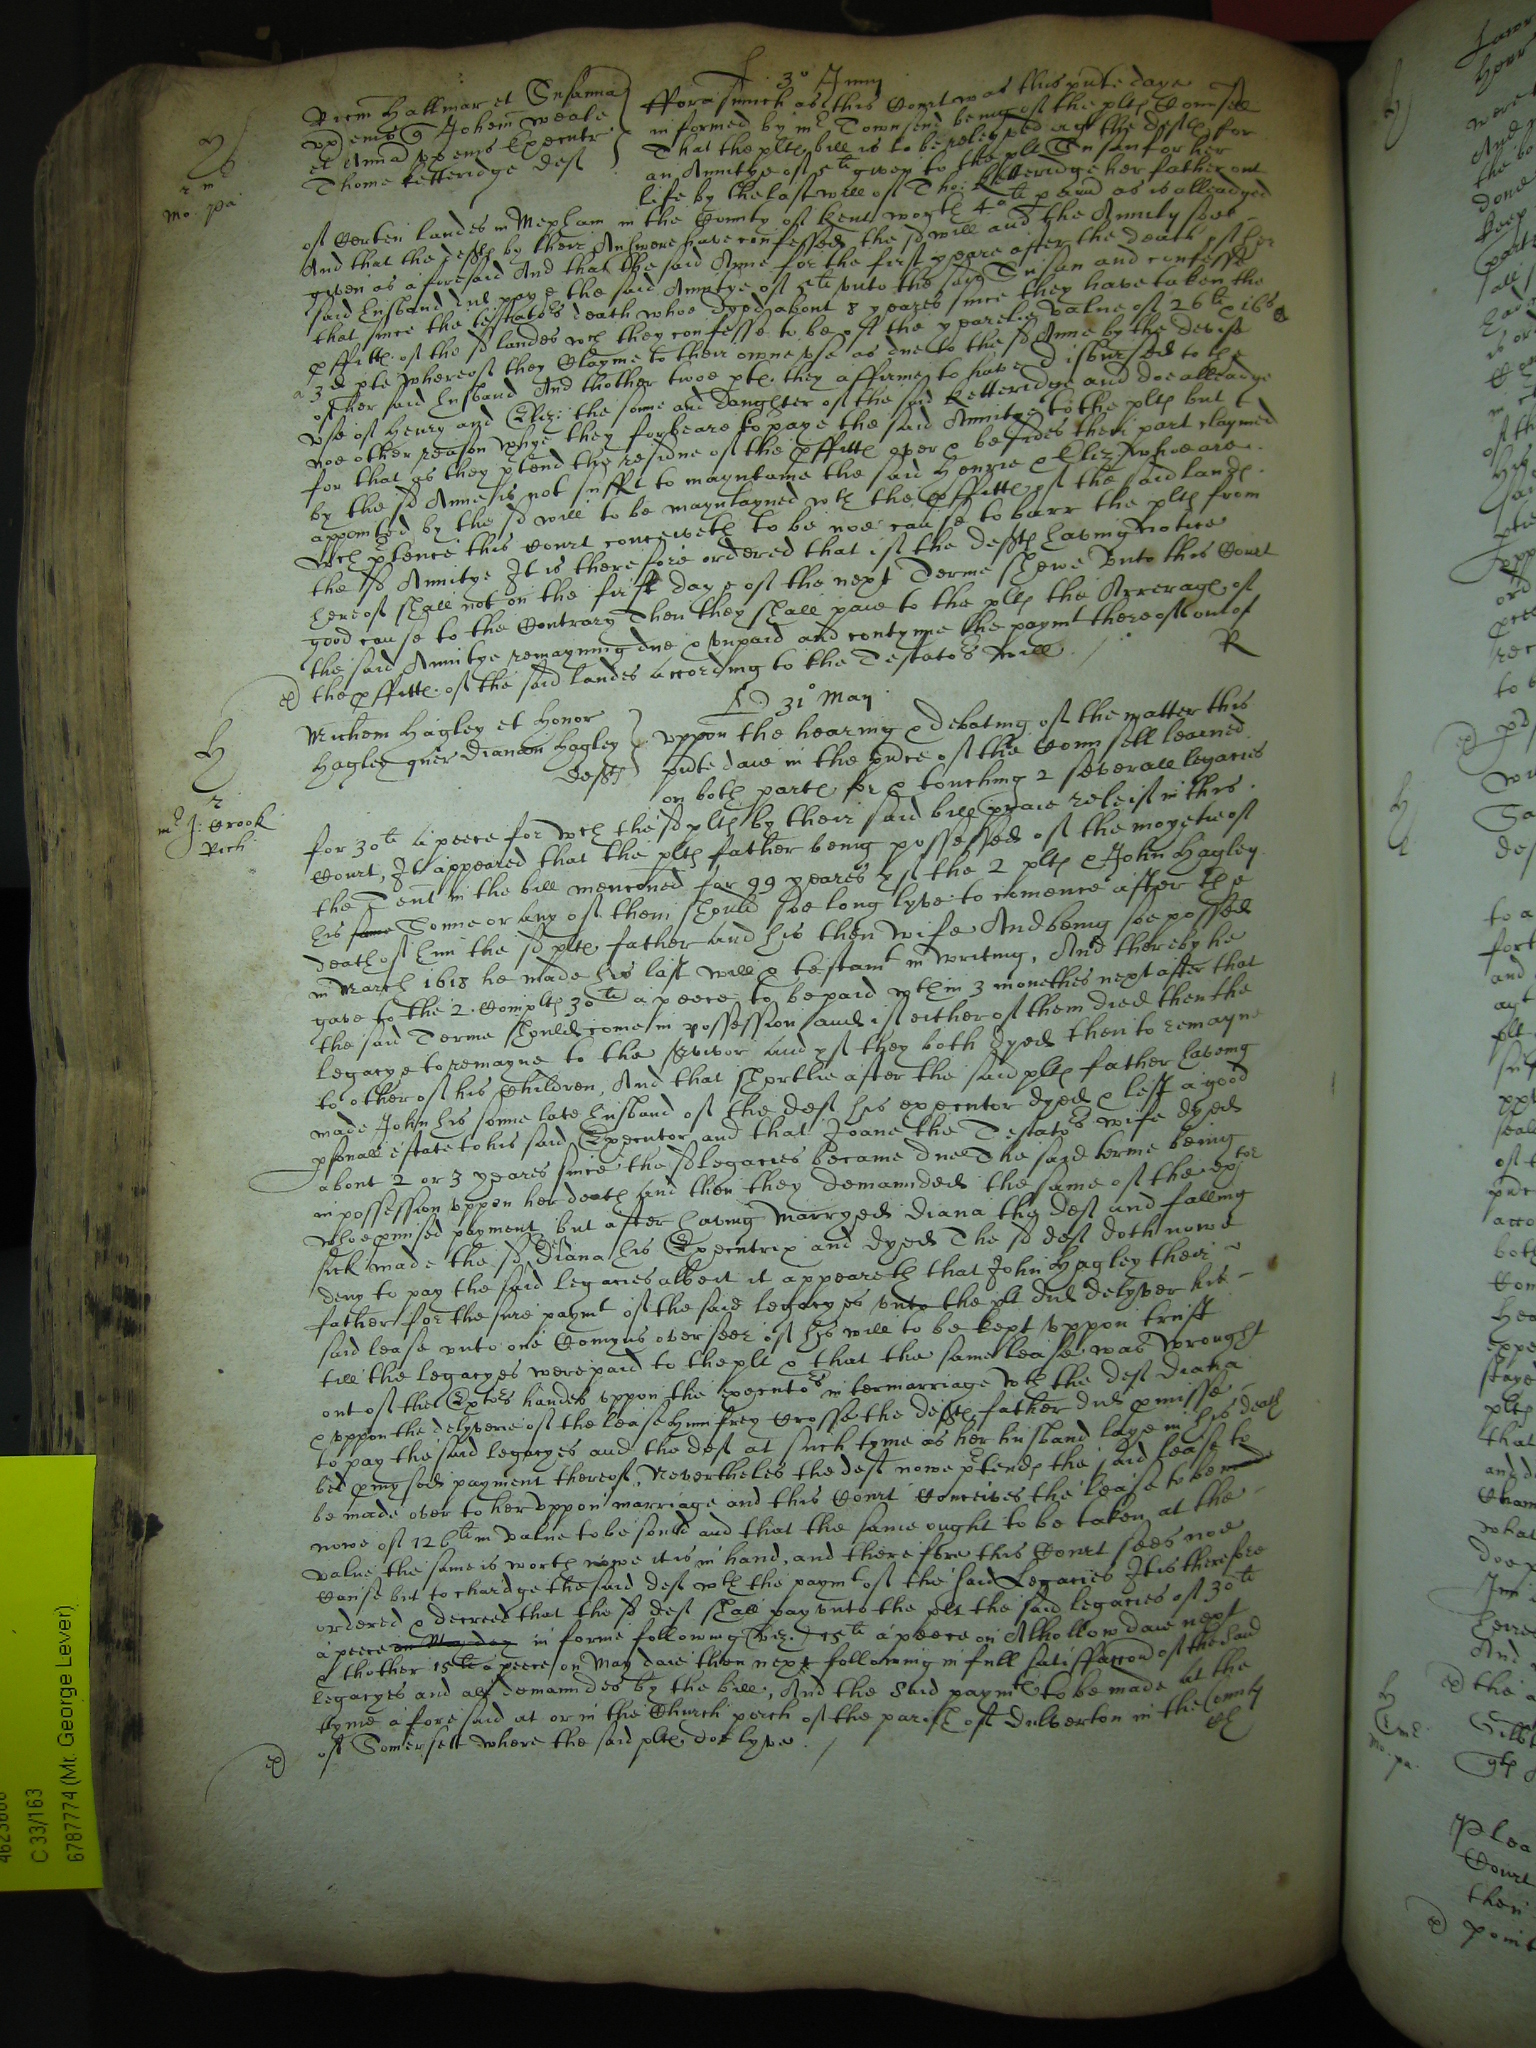 3º Junij
Ricm Hallmar et Susanna
ux eius Johem Weale
et Anna ux eius Execut
Thome Ketteridge def
H
r mr
mo: pa
fforasmuch as this Court was this pnte daye
informed by mr Townsend being of the plts Counsell
That the plts bill is to be releived agt the defts for
an Annitye of 5li given to the plt Susan for her
life by the last will of Tho: Ketteridge her father out
of Certen landes in Mepham in the County of Kent worth 40li p annū as is alleadged
And that the defts by their Answere have confessed the sd will and the Annuity soe
given as aforesaid And that the said Anne for the first yeare after the death of her
said husband did paye the said Annitye of 5li unto the said Susan and confesse
that since the testators death whoe dyed about 8 yeares since they have taken the
pffitts of the sd landes wch they confesse to be of the yearelie value of 26li 16s
a 3d pte whereof they Clayme to their owne use as due to the sd Anne by the devise
of her said husband And thother twoe pts they affirme to have disbursed to the
use of Henry and Eliz: the sonne and daughter of the said Ketteridge and doe alleadge
noe other reason whye they forbeare to paye the said Annitye to the plts but
for that as they ptend the residue of the pffitts over & besides their part claymed
by the sd Anne is not suffit to mayntaine the said Henrie & Eliz: whoe are
appointed by the sd will to be mayntayned wth the pffitts of the said lands
Wch ptence this Court conceiveth to be noe cause to barr the plts from
the sd Annitye It is therefore ordered that if the defts having notice
hereof shall not on the first daye of the next Terme shewe unto this Court
good cause to the Contrary Then they shall paie to the plts the Arrerages of
the said Annitye remayning due & unpaid and contynue the paymt thereof out of
the pffitts of the said landes according to the Testators Will
R
31º Maij
Michem Hagley et Honor
Hagley quer Dianam Hagley
deft
H
r
mr J: Crook
Rich
uppon the hearing & debating of the matter this
pnte daie in the pnce of the Counsell learned
on both parts for & touching 2 severall legacies
for 30li a peece for wch the sd plts by their said bill praie releif in this
Court, It appeared that the plts father being possessed of the moyetie of
the Tent in the bill menconed for 99 yeares yf the 2 plts & John Hagley
his same Sonne or any of them should soe long lyve to comence after the
death of him the sd plts father and his then wife And being soe possed
in March 1618 he made his last will & testamt in writing, And thereby he
gave to the 2 Complts 30li a peece to be paid wthin 3 monethes next after that
the said Terme should come in possession and if either of them died then the
legacye to remayne to the survivor and yf they both dyed then to remayne
to other of his Children, And that shortlie after the said plts father haveing
made John his sonne late husband of the deft his executor dyed & left a good
psonall estate to his said Executor and that Joane the Testators wife dyed
about 2 or 3 yeares since the sd legacies became due The said terme being
in possession uppon her death And then they demaunded the same of the exctor
whoe pmised payment but after having marryed Diana the deft and falling
sick made the sd Diana his Executrix and dyed The sd deft doth nowe
deny to pay the said legacies albeit it appeareth that John Hagley their
father for the sure paymt of the said legacyes unto the plt did delyver his
said lease unto one Comyns overseer of his will to be kept uppon trust
till the legacyes were paid to the plt & that the same lease was wrought
out of the Exctors handes uppon the executors intermarriage wth the deft Diana
& uppon the delyverie of the lease Humfrey Crosse the defts father did pmisse
to pay the said legacyes and the deft at such tyme as her husband laye in his death
bed pmysed payment thereof, Nevertheles the deft nowe ptends the said lease to
be made over to her uppon marriage and this Court Conceives the lease to be
nowe of 126li in value to be sould and that the same ought to be taken at the
value the same is worth nowe it is in hand, and therefore this Court sees noe
Cause but to chardge the said deft wth the paymt of the said Legacies It is therefore
ordered & decreed that the sd deft shall pay unto the plts the said legacies of 30li
a peece on May day in forme following (viz.) 15li a peece on Alhollow daie next
& thother 15li a peece on May daie then next following in full satisfaccon of the said
legacyes and all demaundes by the bill, And the said paymts to be made at the
tyme aforesaid at or in the Church porch of the parish of Dulverton in the County
of Somersett where the said plts doe lyve.
C 33/163
6787774 (Mr. George Lever)